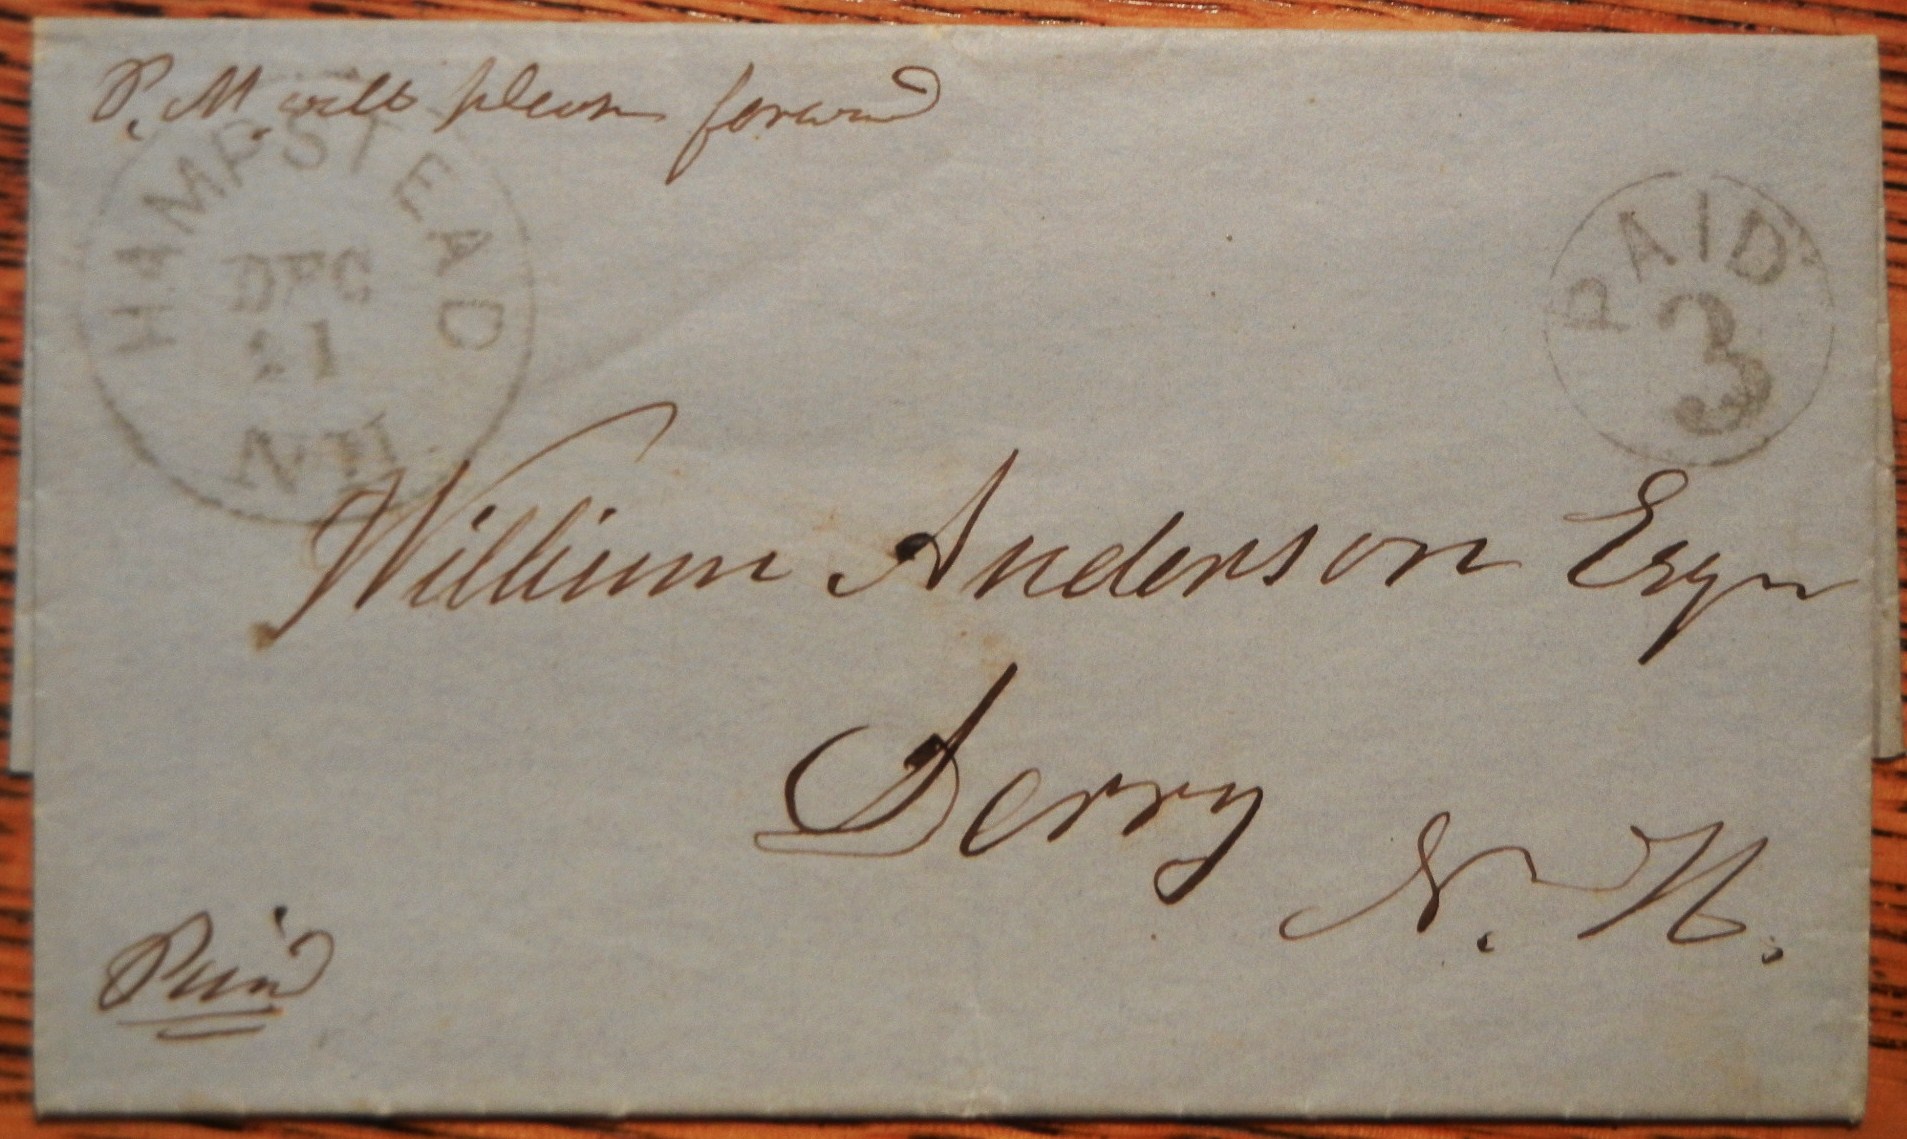 P. M. will please forward
HAMPSTEAD
DEC
21
N.H
PAID
3
William Anderson Esqr
Derry
N. H.
Paid